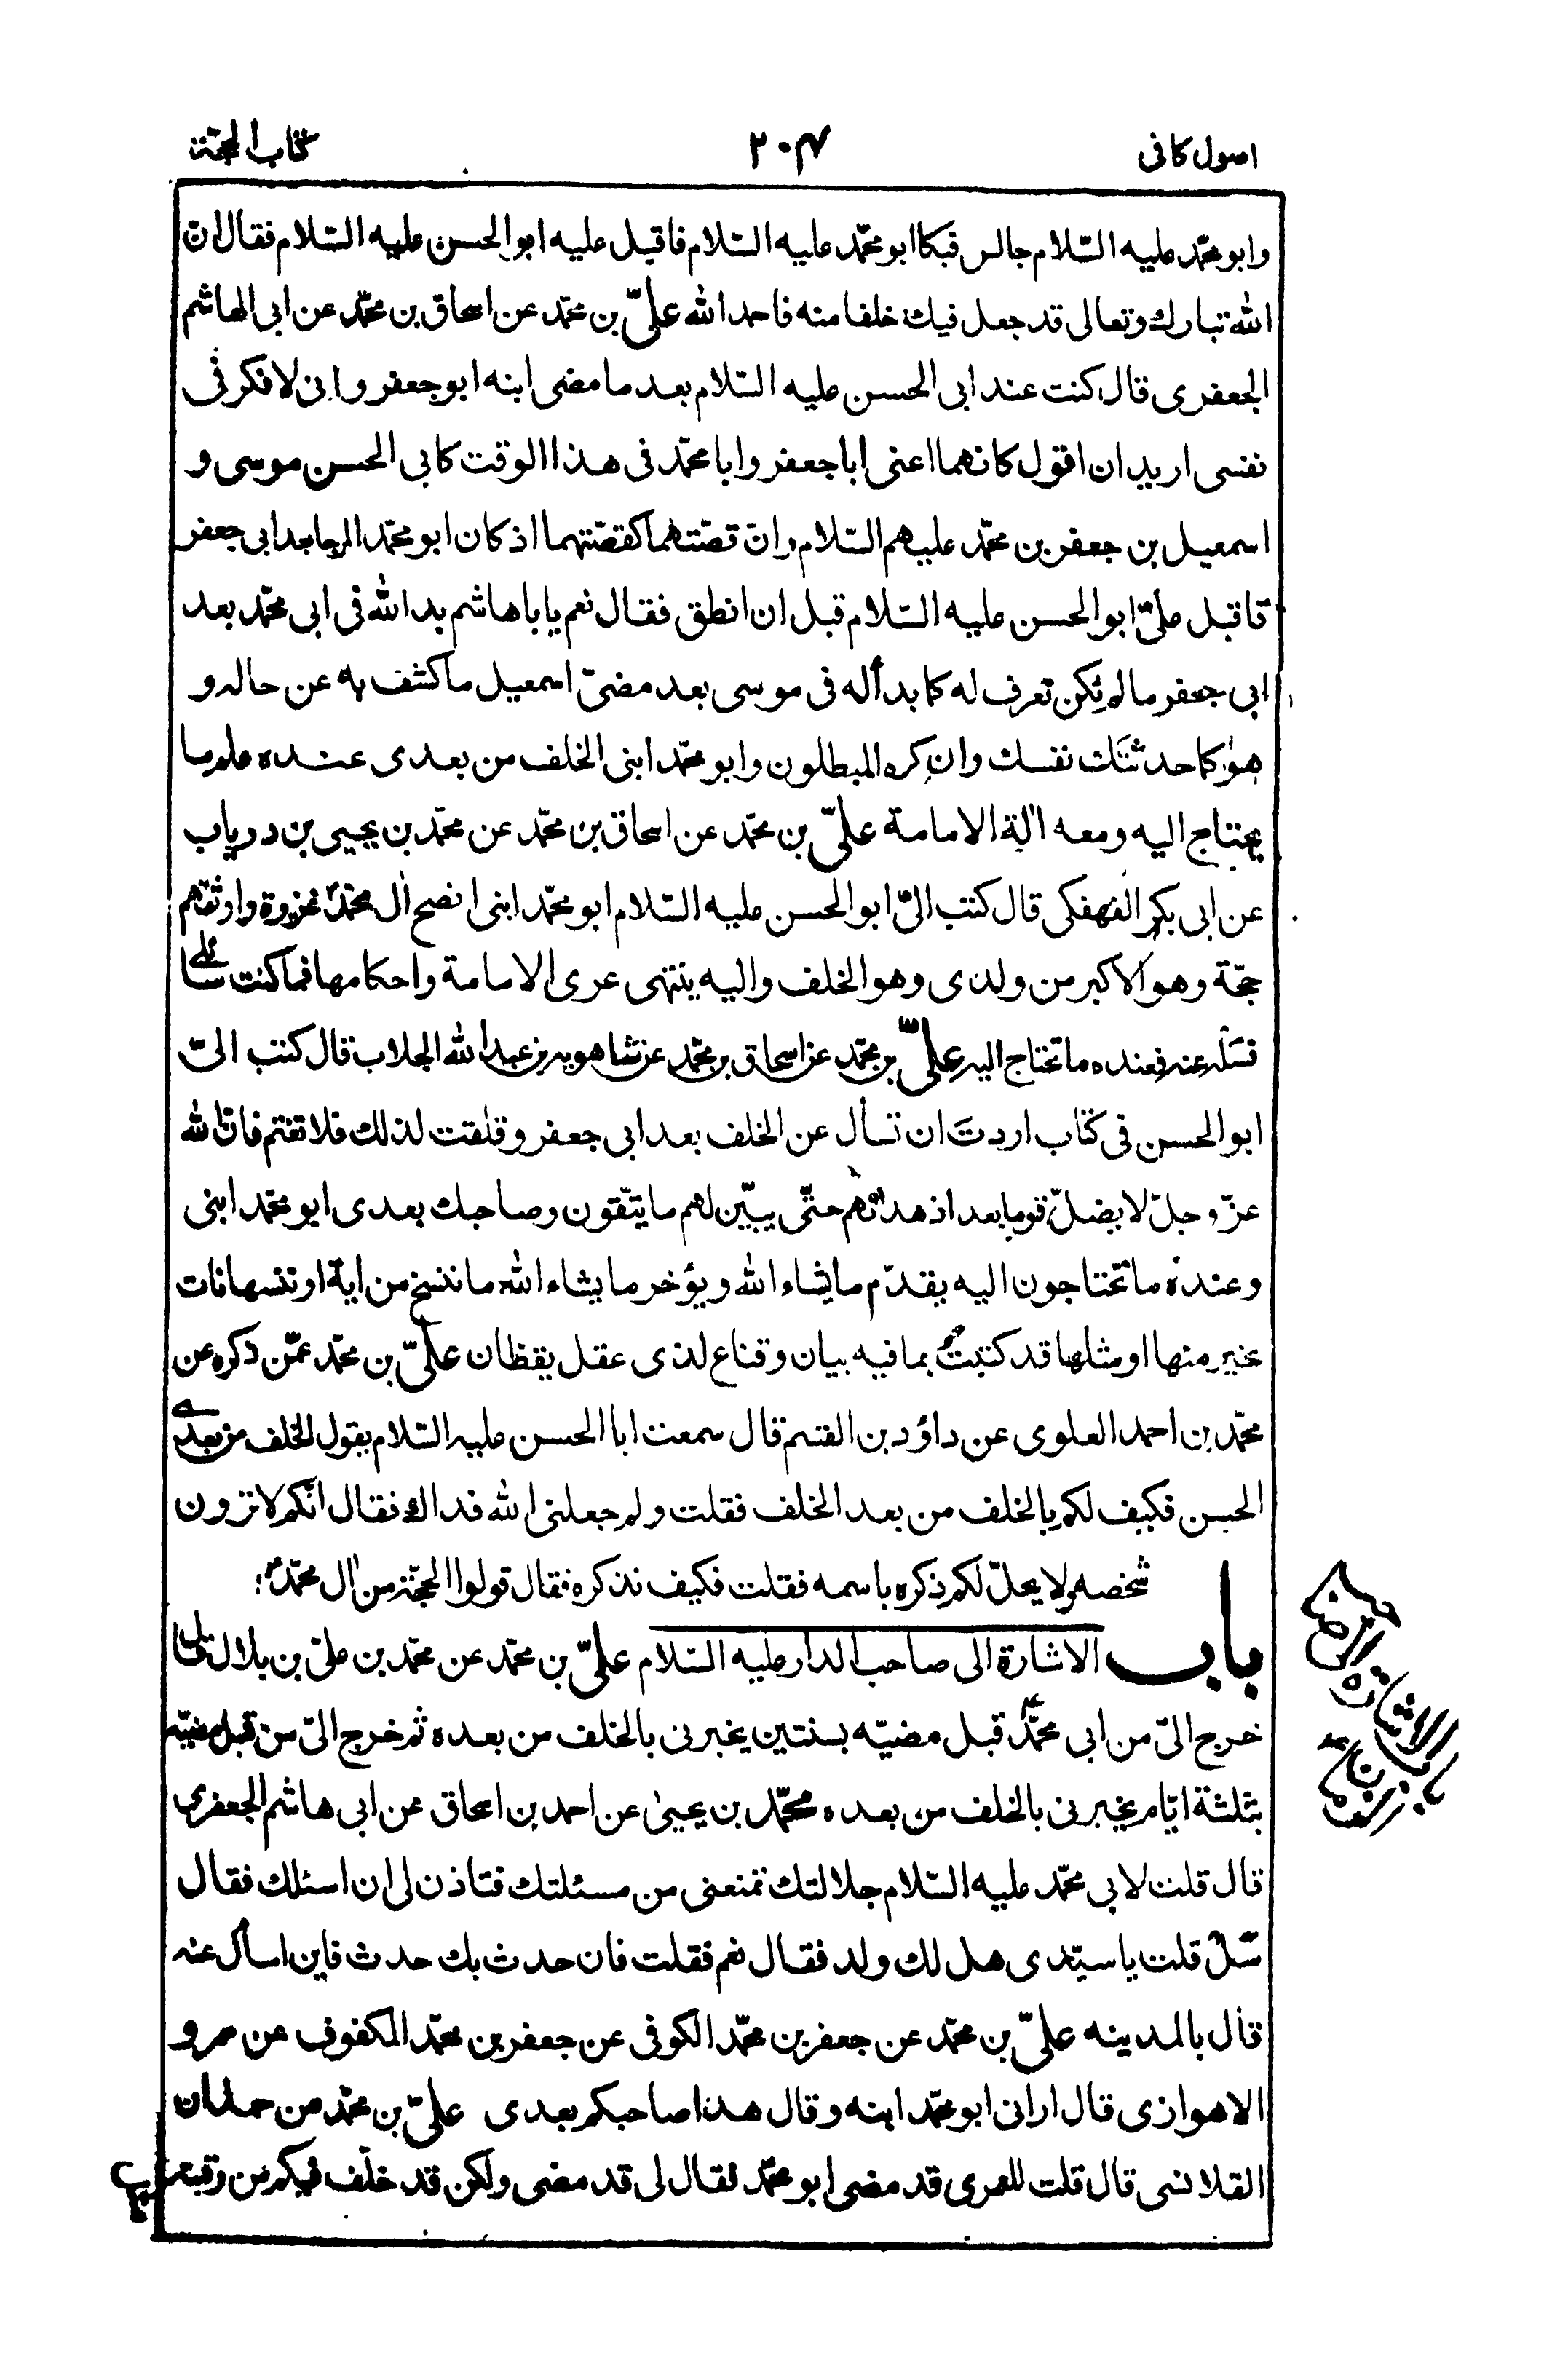 اصول كافى
٢٠٤
كتاب الحجّة
وابو محمّد عليه السّلام جالس فبكا ابو محمّد عليه السّلام فاقبل عليه ابو الحسن عليه السّلام فقال انّ
الله تبارك وتعالى قد جعل فيك خلفا منه فاحمد الله علىّ بن محمّد عن اسحاق بن محمّد عن ابى الهاشم
الجعفرى قال كنت عند ابى الحسن عليه السّلام بعد ما مضى ابنه ابو جعفر وانى لافكر فى
نفسى اريد ان اقول كانهما اعنى ابا جعفر وابا محمّد فى هذا الوقت كابى الحسن موسى و
اسمعيل بن جعفر بن محمّد عليهم السّلام وانّ قصّتهما كقصّتهما اذ كان ابو محمّد المرجا بعد ابى جعفر
فاقبل علىّ ابو الحسن عليه السّلام قبل ان انطق فقال نعم يا با هاشم بد الله فى ابى محمّد بعد
ابى جعفر ما لم يكن تعرف له كما بدأ له فى موسى بعد مضىّ اسمعيل ما كشف به عن حاله و
هو كما حدثتك نفسك وان كره المبطلون وابو محمّد ابنى الخلف من بعدى عنده علم ما
يحتاج اليه ومعه آلة الامامة علىّ بن محمّد عن اسحاق بن محمّد عن محمّد بن يحيى بن درياب
عن ابى بكر الفهفكى قال كتب الىّ ابو الحسن عليه السّلام ابو محمّد ابنى انصح آل محمّد غريزة واوثقهم
حجّة وهو الاكبر من ولدى وهو الخلف واليه ينتهى عرى الامامة واحكامها فما كنت سائلى
فسئله عنه فعنده ما تحتاج اليه علىّ بن محمّد عن اسحاق بن محمّد عن شاهويه بن عبد الله الجلاب قال كتب الىّ
ابو الحسن فى كتاب اردتَ ان تسأل عن الخلف بعد ابى جعفر وقلقت لذلك فلا تغتم فانّ الله
عزّ وجلّ لا يضلّ قوما بعد اذ هداهم حتّى يبيّن لهم ما يتّقون وصاحبك بعدى ابو محمّد ابنى
وعنده ما تحتاجون اليه يقدّم ما يشاء الله ويؤخر ما يشاء الله ما ننسخ من اية او ننسها نات
بخير منها او مثلها قد كتبت بما فيه بيان وقناع لذى عقل يقظان علىّ بن محمّد عمّن ذكره عن
محمّد بن احمد العلوى عن داؤد بن القسم قال سمعت ابا الحسن عليه السّلام يقول الخلف من بعدى
الحسن فكيف لكم بالخلف من بعد الخلف فقلت ولم جعلنى الله فداك فقال انّكم لا ترون
شخصه ولا يحلّ لكم ذكره باسمه فقلت فكيف نذكره فقال قولوا الحجّة من آل محمّد
باب الاشارة الى صاحب الدار عليه السّلام علىّ بن محمّد عن محمّد بن علىّ بن بلال قال
خرج الىّ من ابى محمّد قبل مضيّه بسنتين يخبرنى بالخلف من بعده ثم خرج الىّ من قبل مضيّه
بثلثة ايّام يخبرنى بالخلف من بعده محمّد بن يحيىٰ عن احمد بن اسحاق عن ابى هاشم الجعفرى
قال قلت لابى محمّد عليه السّلام جلالتك تمنعنى من مسئلتك فتاذن لى ان اسئلك فقال
سَل قلت يا سيّدى هل لك ولد فقال نعم فقلت فان حدث بك حدث فاين اسأل عنه
قال بالمدينه علىّ بن محمّد عن جعفر بن محمّد الكوفى عن جعفر بن محمّد المكفوف عن عمرو
الاهوازى قال ارانى ابو محمّد ابنه وقال هذا صاحبكم بعدى علىّ بن محمّد عن حمدان
القلانسى قال قلت للعمرى قد مضى ابو محمّد فقال لى قد مضى ولكن قد خلّف فيكم من رقبته